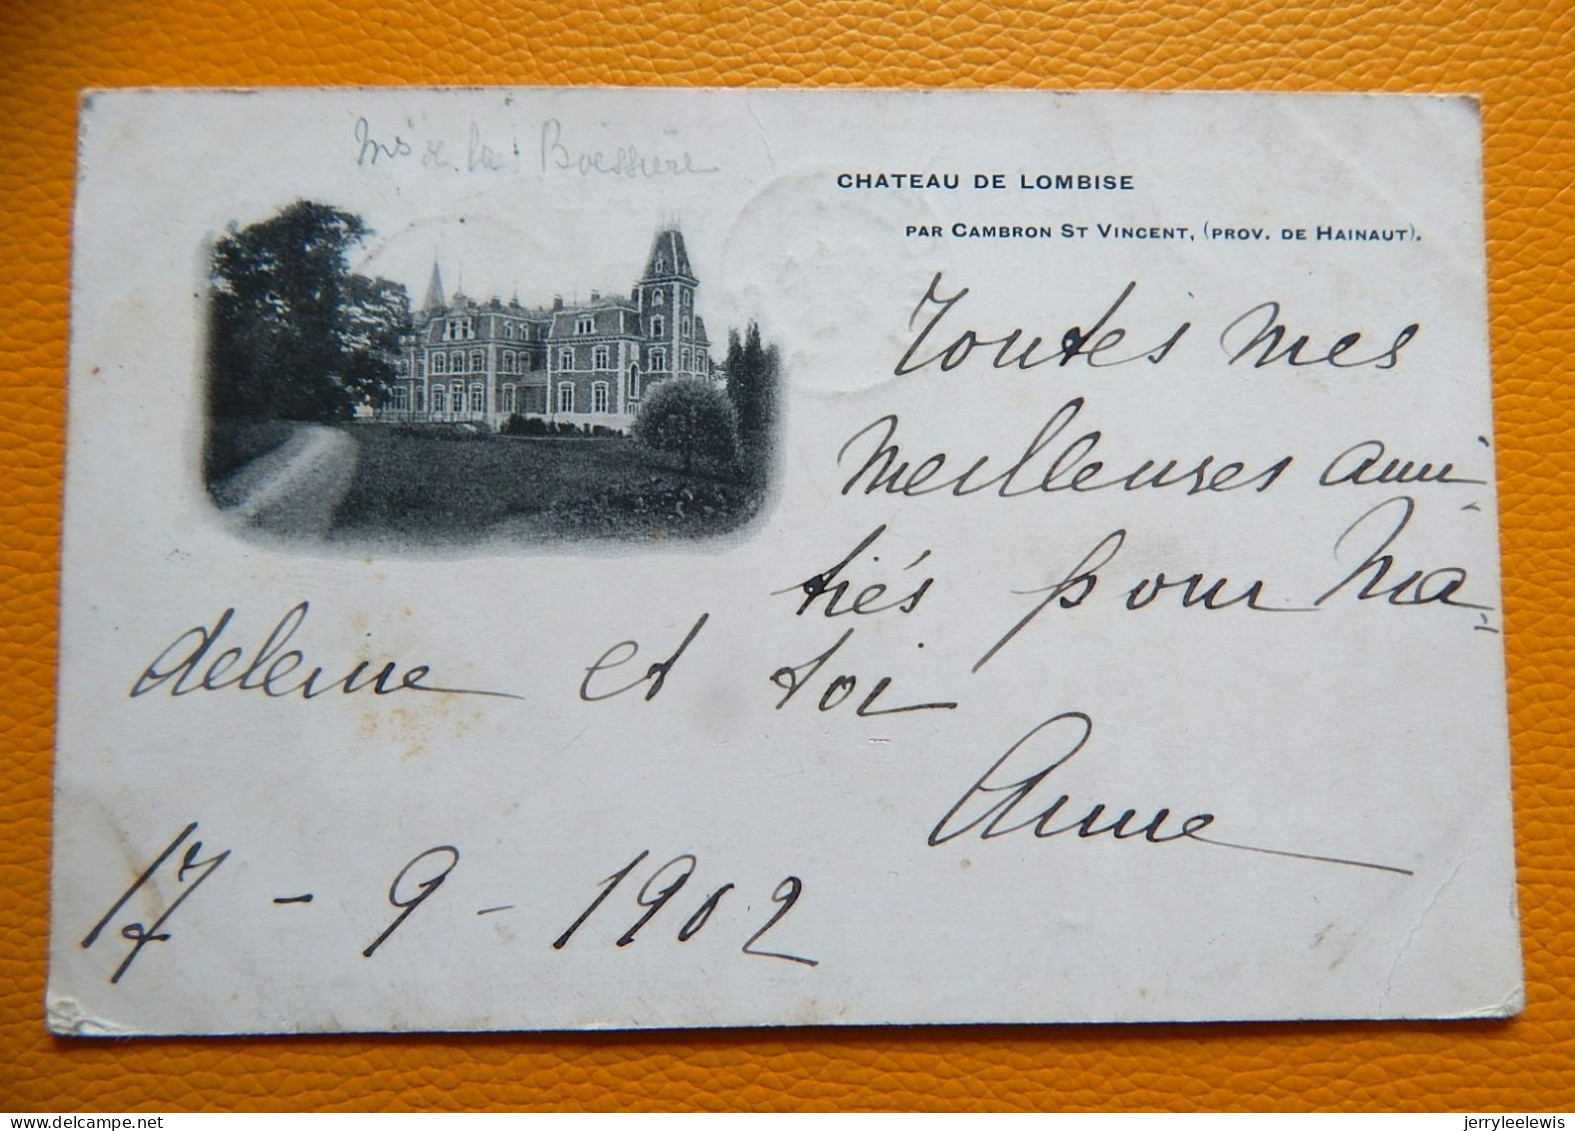 Ms de la Boessière
CHATEAU DE LOMBISE
PAR CAMBRON ST VINCENT, (PROV. DE HAINAUT).
Toutes mes
meilleures ami-
tiés pour Ma-
deleine et toi
Anne
17 - 9 - 1902
jerryleelewis